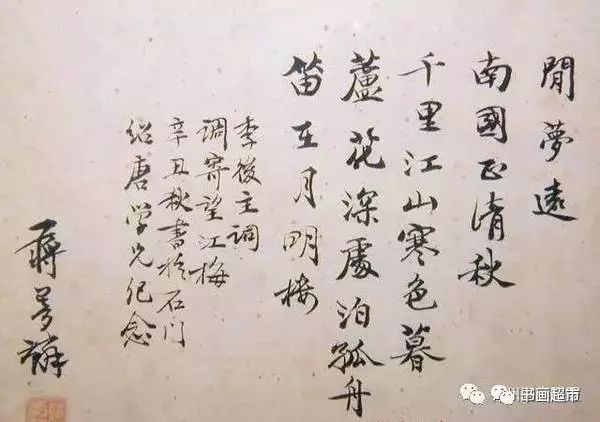 閒夢遠
南國正清秋
千里江山寒色暮
蘆花深處泊孤舟
笛在月明樓
李後主調
調寄望江梅
辛丑秋書於石门
绍唐学兄纪念
州书画超市